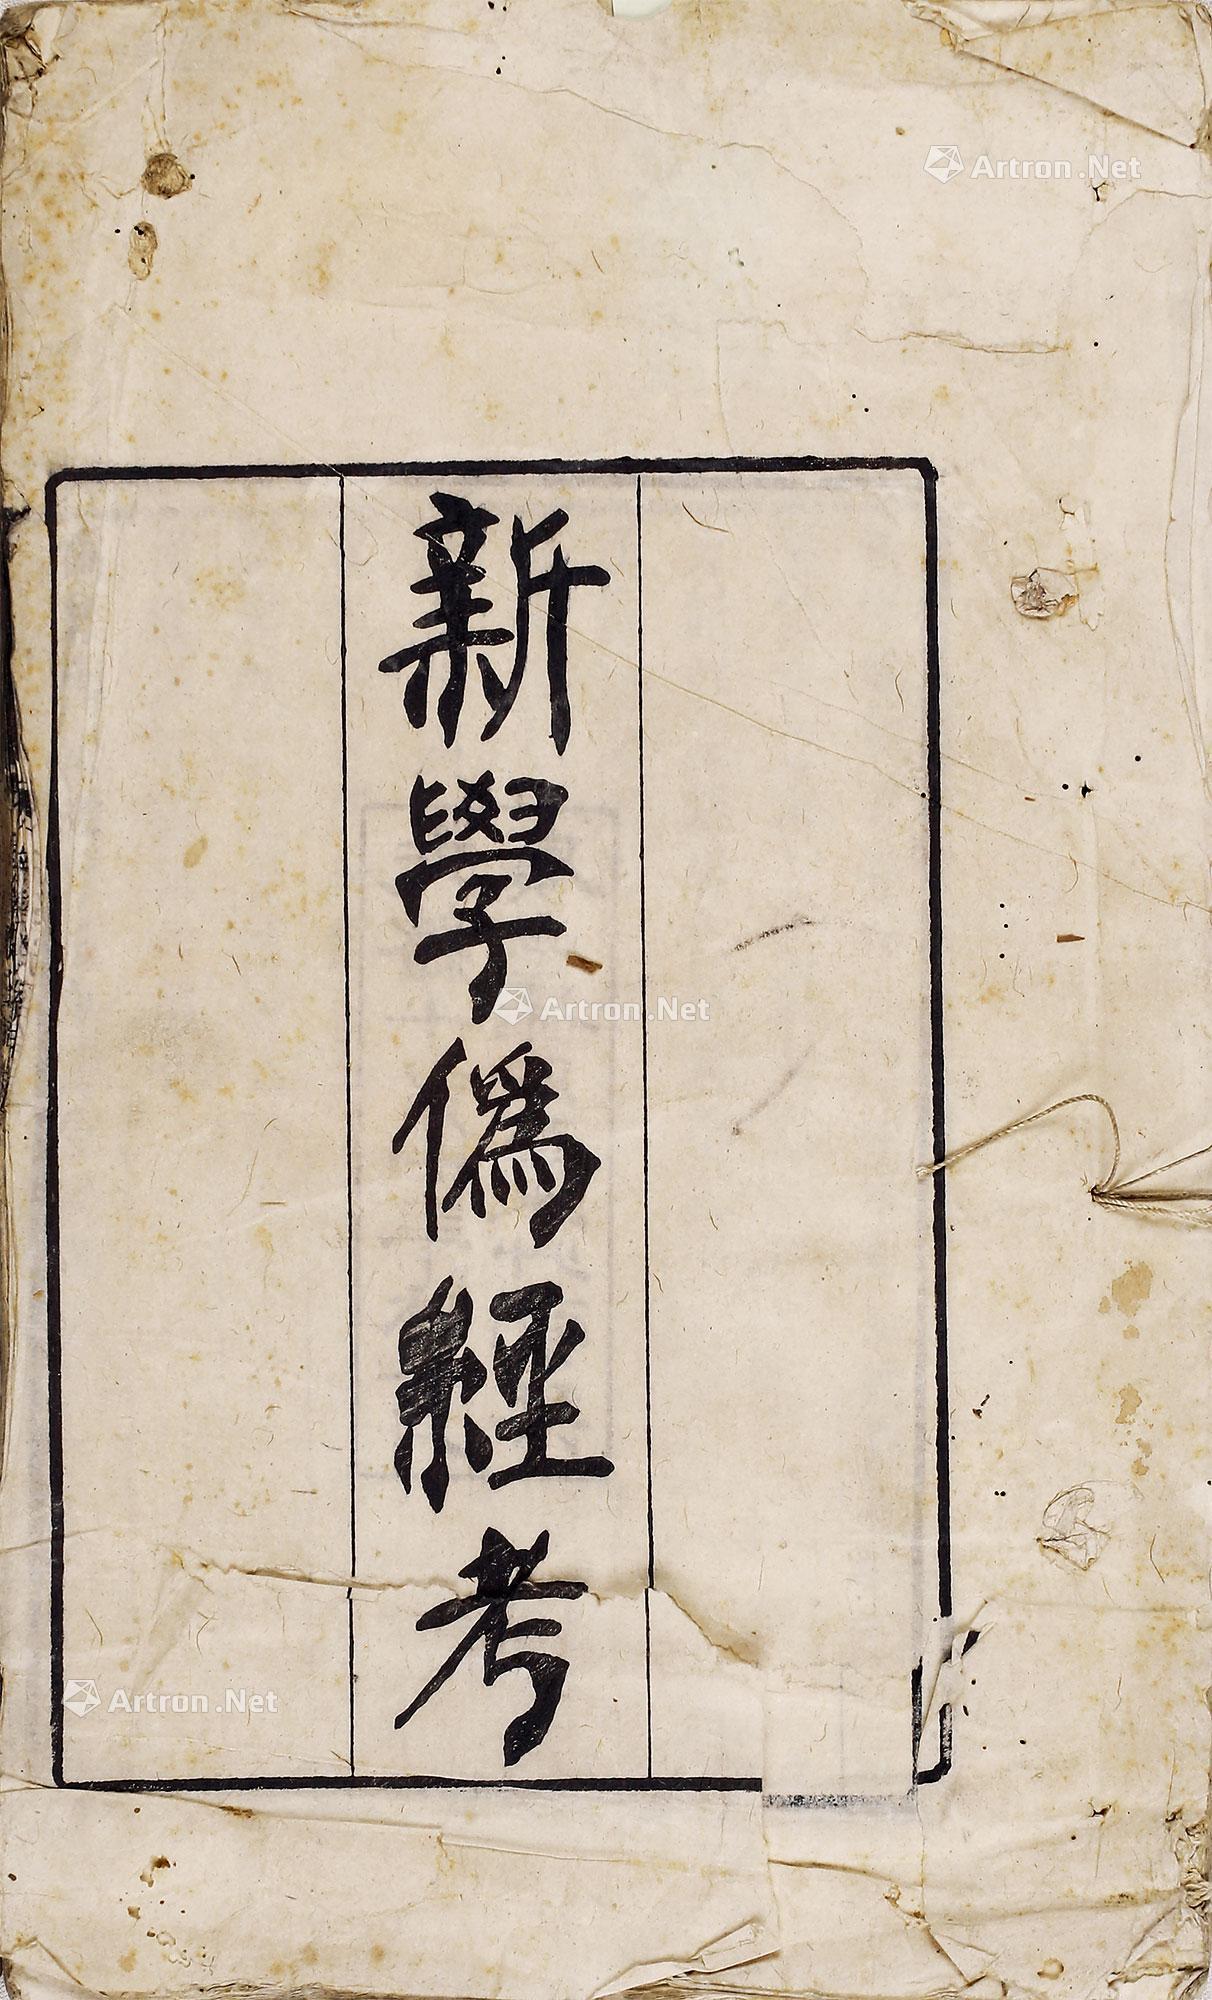 Artron.Net
新學僞經考
Artron.Net
Artron.Net